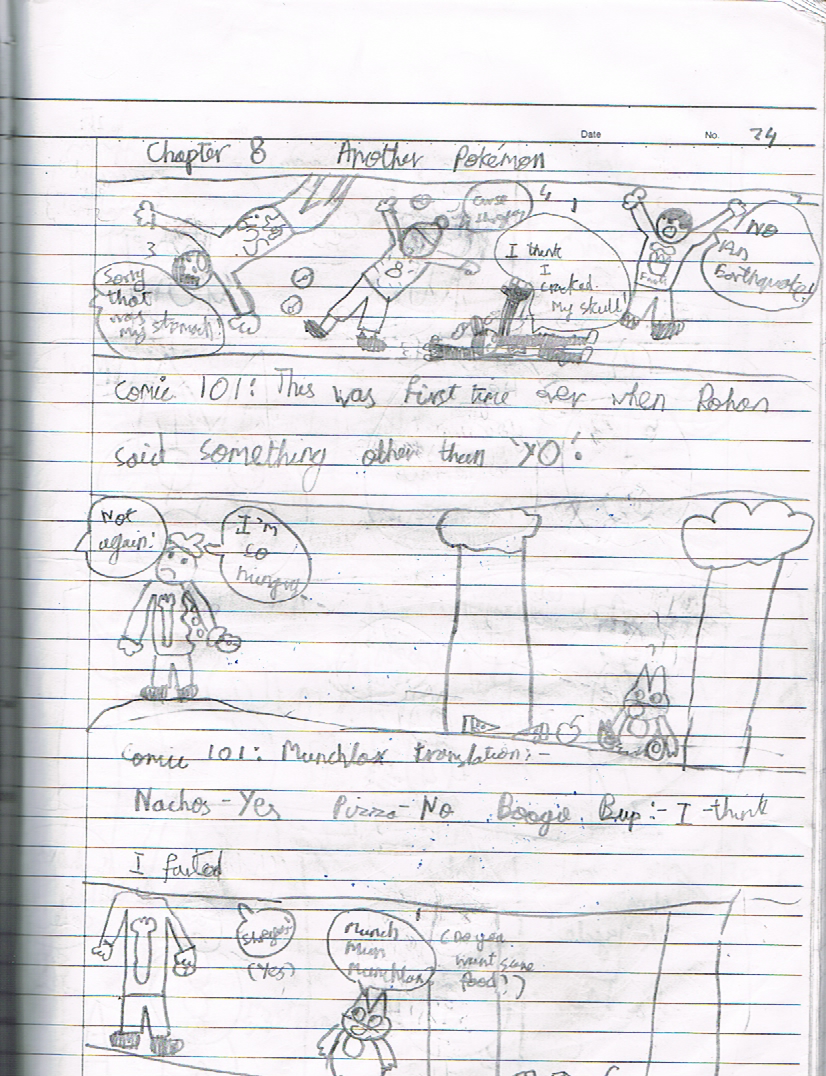 Date No. 24
Chapter 8 Another Pokémon
3
Sorry
that
was
my stomach!
8
Curse
4
I think
I
cracked
My skull!
NO
An
Earthquake!
Comic 101: This was first time ever when Rohan
said something other than 'YO'.
Not
again!
I'm
so
hungry
Comic 101: Munchlax translation:-
Nachos - Yes Pizza - No Boogie Bup:- I -think
I farted
(Yes)
Munch
Mun
Munchlax
(Do you
want some
food?)